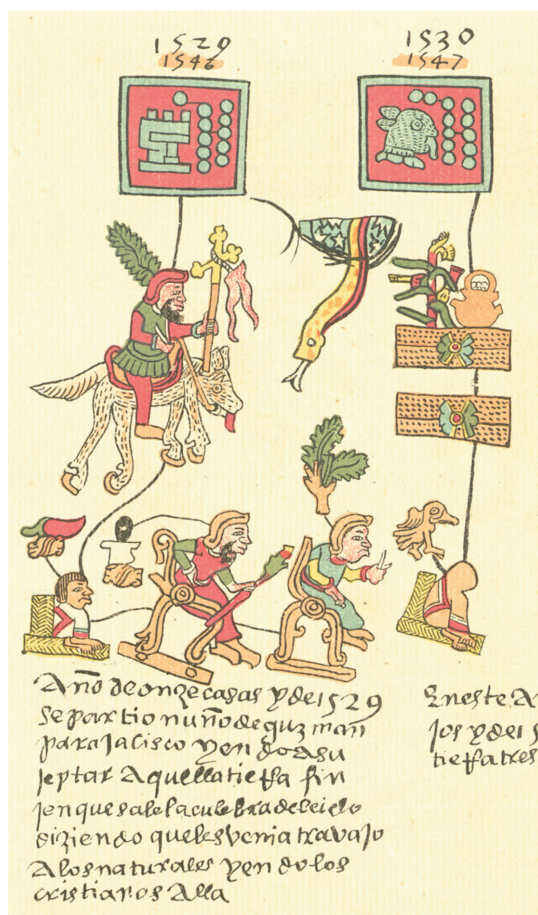 1529
1546
1530
1547
Año de onze casas y de 1529
se partio nuño de guzman
para Jalisco yendo a su
jeptar Aquella tieRa fin
jen que sale la culebra del cielo
diziendo que les venia travajo
A los naturales yendo los
cristianos Alla
Eneste A
jos y de 15
tieRa tres